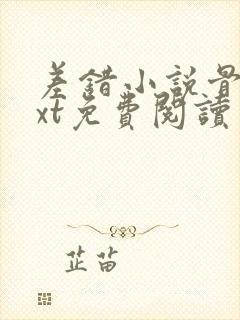 差錯小説骨
xt免費閱讀
芷苗